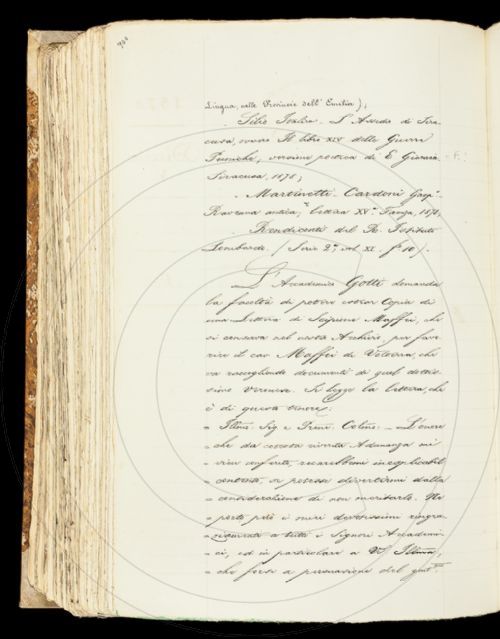 Lingua, nelle Provincie dell' Emilia);
Silio Italico. L'Assedio di Sira
cusa, ovvero Il libro XIV delle Guerre
Puniche, versione poetica di E. Giaracà
Siracusa, 1878;
Martinetti - Cardoni Gasp.
Ravenna antica, Lettera XVa. Faenza, 1878,
Rendiconti del R. Istituto
Lombardo. (Serie 2a, vol. XI. f. 10).
L'Accademico Gotti domanda
la facoltà di potere cavar Copia di
una Lettera di Scipione Maffei, che
si conserva nel nostro Archivio, per favo
rire il cav. Maffei di Volterra, che
va raccogliendo documenti di quel dottis
simo Veronese. Si legge la lettera, che
è di questo tenore:
Illmo. Sig. e Pron. Colmo: - L'onore
che da cotesta
contento, se potessi divertirmi dalla
considerazione di non meritarlo. Ne
porto però i miei devotissimi ringra
ziamenti a tutti i Signori Accademi
ci, ed in particolare a VS. Illma,
che forse a persuasione del